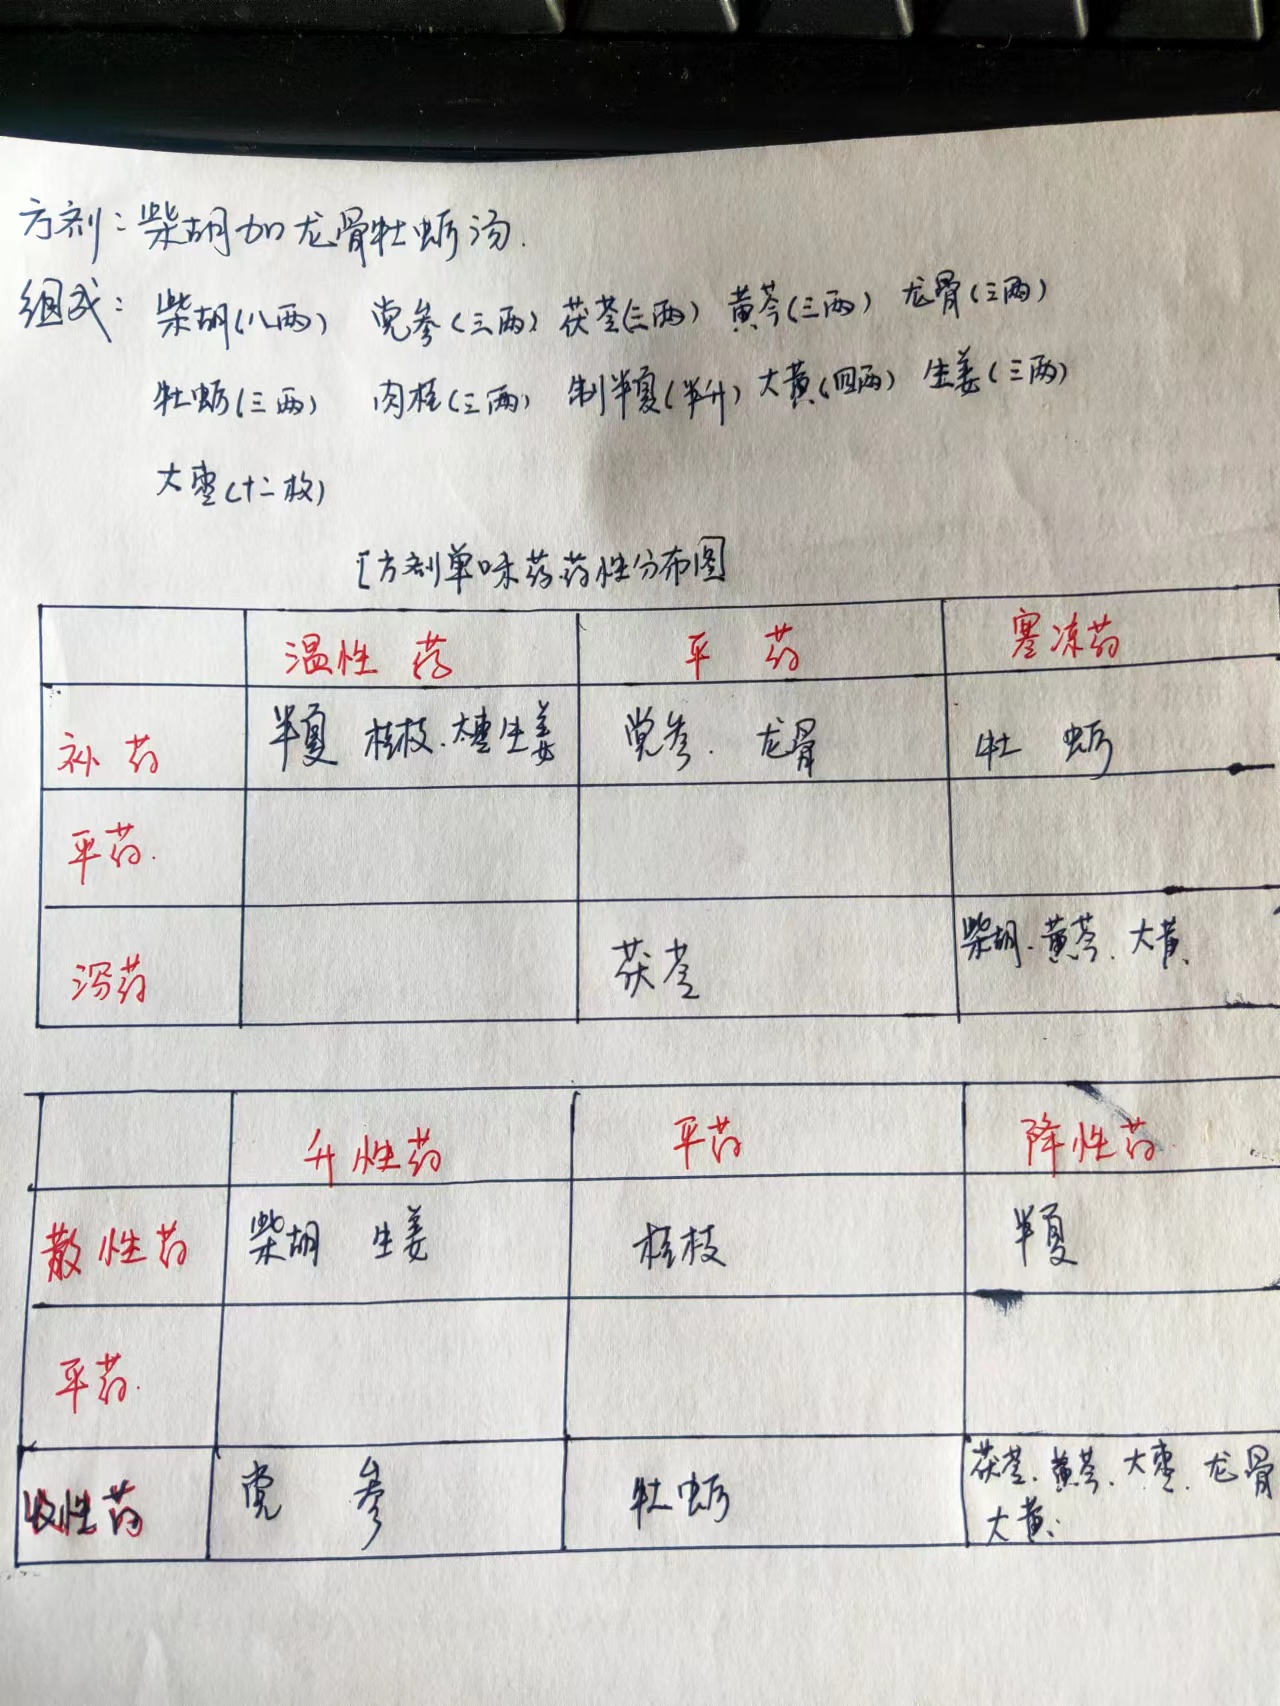 方剂：柴胡加龙骨牡蛎汤.
组成：柴胡(八两) 党参(三两) 茯苓(三两) 黄芩(三两) 龙骨(三两)
牡蛎(三两) 肉桂(三两) 制半夏(半升) 大黄(四两) 生姜(三两)
大枣(十二枚)
[方剂单味药药性分布图]
温性药 平药 寒凉药
补药 半夏 桂枝.大枣生姜 党参. 龙骨 牡蛎
平药.
泻药 茯苓 柴胡.黄芩.大黄
升性药 平药 降性药
散性药 柴胡 生姜 桂枝 半夏
平药.
收性药 党参 牡蛎 茯苓.黄芩.大枣.龙骨
大黄.